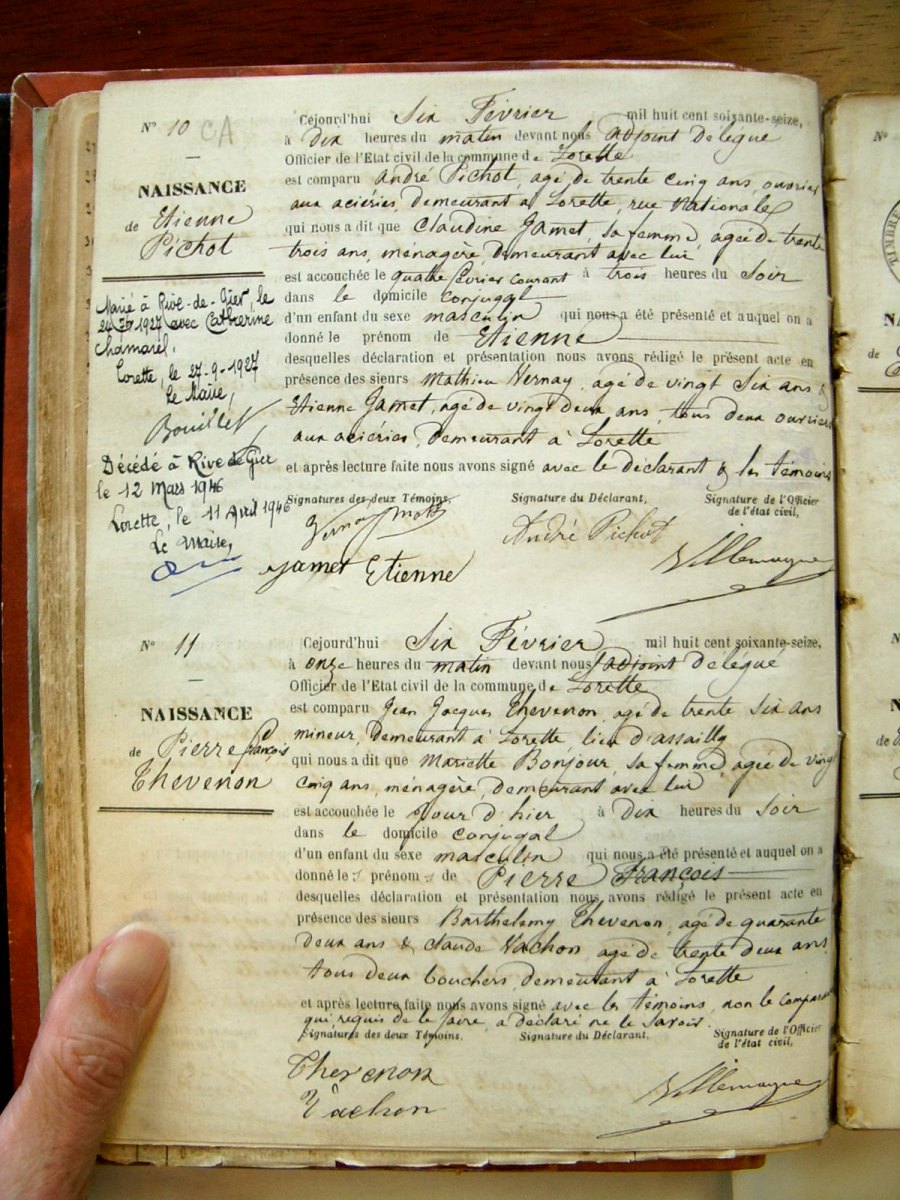 N° 10 CA
NAISSANCE
de Etienne
Pichot
Marié à Rive-de-Gier, le
24 7bre 1927 avec Catherine
Chamarel.
Lorette, le 27-9-1927
Le Maire,
Bouillet
Décédé à Rive de Gier
le 12 Mars 1946
Lorette, le 11 Avril 1946
Le Maire,
Cejourd'hui Six Février mil huit cent soixante-seize,
à dix heures du matin devant nous adjoint délégué
Officier de l'Etat civil de la commune de Lorette
est comparu André Pichot, agé de trente cinq ans, ouvrier
aux aciéries, demeurant à Lorette, rue Nationale
qui nous a dit que Claudine Jamet, sa femme, agée de trente
trois ans, ménagère, demeurant avec lui
est accouchée le quatre février courant à trois heures du Soir
dans le domicile conjugal
d'un enfant du sexe masculin qui nous a été présenté et auquel on a
donné le prénom de Etienne
desquelles déclaration et présentation nous avons rédigé le présent acte en
présence des sieurs Mathieu Vernay, agé de vingt Six ans &
Etienne Jamet, agé de vingt deux ans, tous deux ouvriers
aux aciéries, demeurant à Lorette
et après lecture faite nous avons signé avec le déclarant & les témoins
Signatures des deux Témoins. Signature du Déclarant, Signature de l'Officier
de l'état civil,
André Pichot
Jamet Etienne
Villemagne
N° 11
NAISSANCE
de Pierre françois
Thevenon
Cejourd'hui Six Février mil huit cent soixante-seize,
à onze heures du matin devant nous adjoint délégué
Officier de l'Etat civil de la commune de Lorette
est comparu Jean Jacques Thevenon, agé de trente Six ans
mineur, demeurant à Lorette, lieu d'assailly
qui nous a dit que Mariette Bonjour, sa femme, agée de vingt
cinq ans, ménagère, demeurant avec lui
est accouchée le jour d'hier à dix heures du Soir
dans le domicile conjugal
d'un enfant du sexe masculin qui nous a été présenté et auquel on a
donné les prénoms de Pierre François
desquelles déclaration et présentation nous avons rédigé le présent acte en
présence des sieurs Barthelemy Thevenon, agé de quarante
deux ans & Claude Vachon, agé de trente deux ans
tous deux bouchers, demeurant à Lorette
et après lecture faite nous avons signé avec les témoins, non le comparant
qui requis de le faire, a déclaré ne le Savoir.
Signatures des deux Témoins. Signature du Déclarant. Signature de l'Officier
de l'état civil,
Thevenon
Vachon
Villemagne